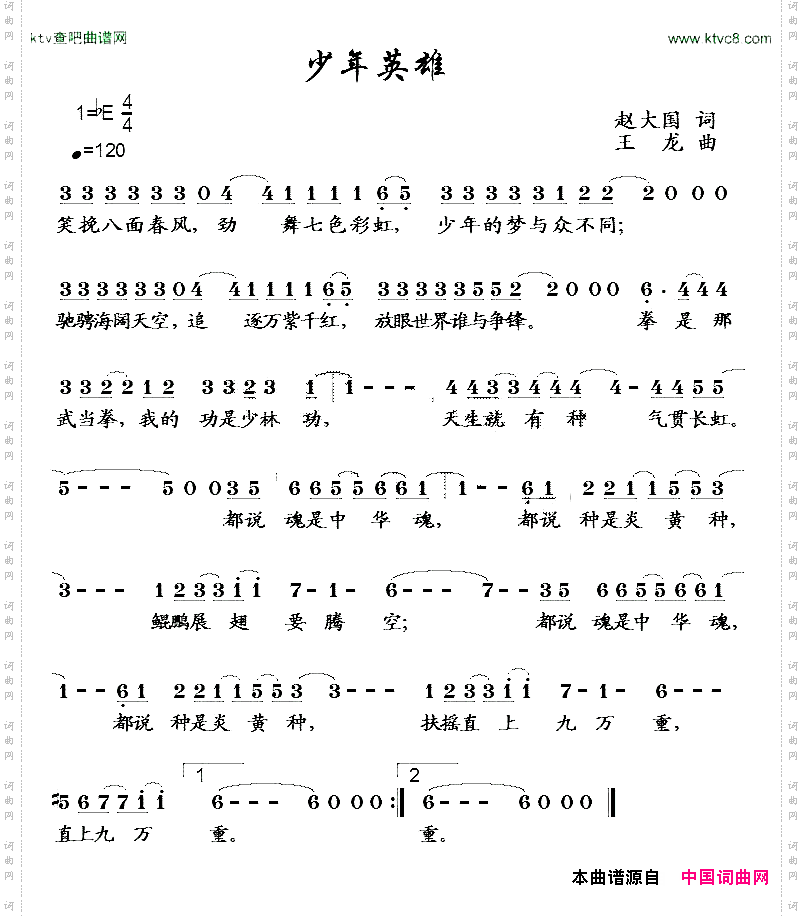 ktv查吧曲谱网
www.ktvc8.com
少年英雄
1=♭E 4/4
赵大国 词
♩=120
王 龙 曲
3 3 3 3 3 3 0 4 4 1 1 1 1 6 5 3 3 3 3 3 1 2 2 2 0 0 0
笑挽八面春风, 劲 舞七色彩虹, 少年的梦与众不同;
3 3 3 3 3 3 0 4 4 1 1 1 1 6 5 3 3 3 3 3 5 5 2 2 0 0 0 6 · 4 4 4
驰骋海阔天空, 追 逐万紫千红, 放眼世界谁与争锋。 拳是那
3 3 2 2 1 2 3 3 2 3 1 1 - - - 4 4 3 3 4 4 4 4 - 4 4 5 5
武当拳, 我的 功是少林 功, 天生就 有 种 气贯长虹。
5 - - - 5 0 0 3 5 6 6 5 5 6 6 1 1 - - 6 1 2 2 1 1 5 5 3
都说 魂是中 华 魂, 都说 种是炎 黄 种,
3 - - - 1 2 3 3 i i 7 - 1 - 6 - - - 7 - - 3 5 6 6 5 5 6 6 1
鲲鹏展 翅 要 腾 空; 都说 魂是中 华 魂,
1 - - 6 1 2 2 1 1 5 5 3 3 - - - 1 2 3 3 i i 7 - 1 - 6 - - -
都说 种是炎 黄 种, 扶摇直 上 九 万 重,
5 6 7 7 i i 1 6 - - - 6 0 0 0 :‖ 2 6 - - - 6 0 0 0 ‖
直上九 万 重。 重。
本曲谱源自 中国词曲网